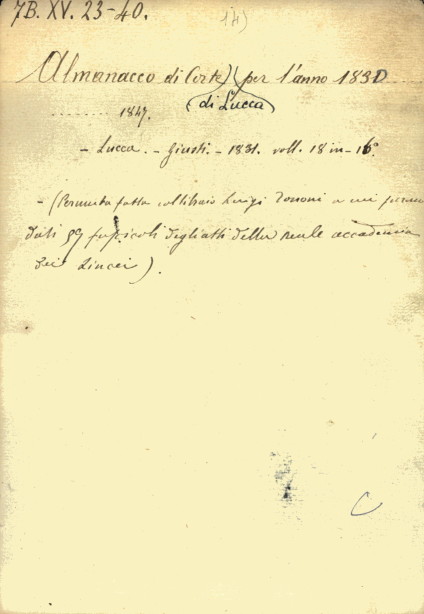 7B. XV. 23-40.
14)
Almanacco di Corte) per l'anno 1830
(di Lucca)
......... 1847.
- Lucca. - Giusti. - 1831. voll. 18 in - 16°
- (Permuta fatta col libraio Luigi a cui furon
dati 59 fascicoli degli atti della reale accademia
dei Lincei).
C